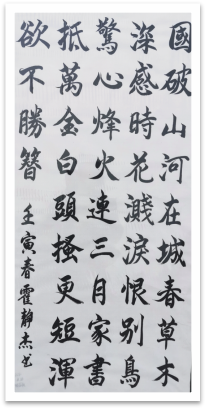 國破山河在城春草木
深感時花濺淚恨別鳥
驚心烽火連三月家書
抵萬金白頭搔更短渾
欲不勝簪
壬寅春霍靜杰书